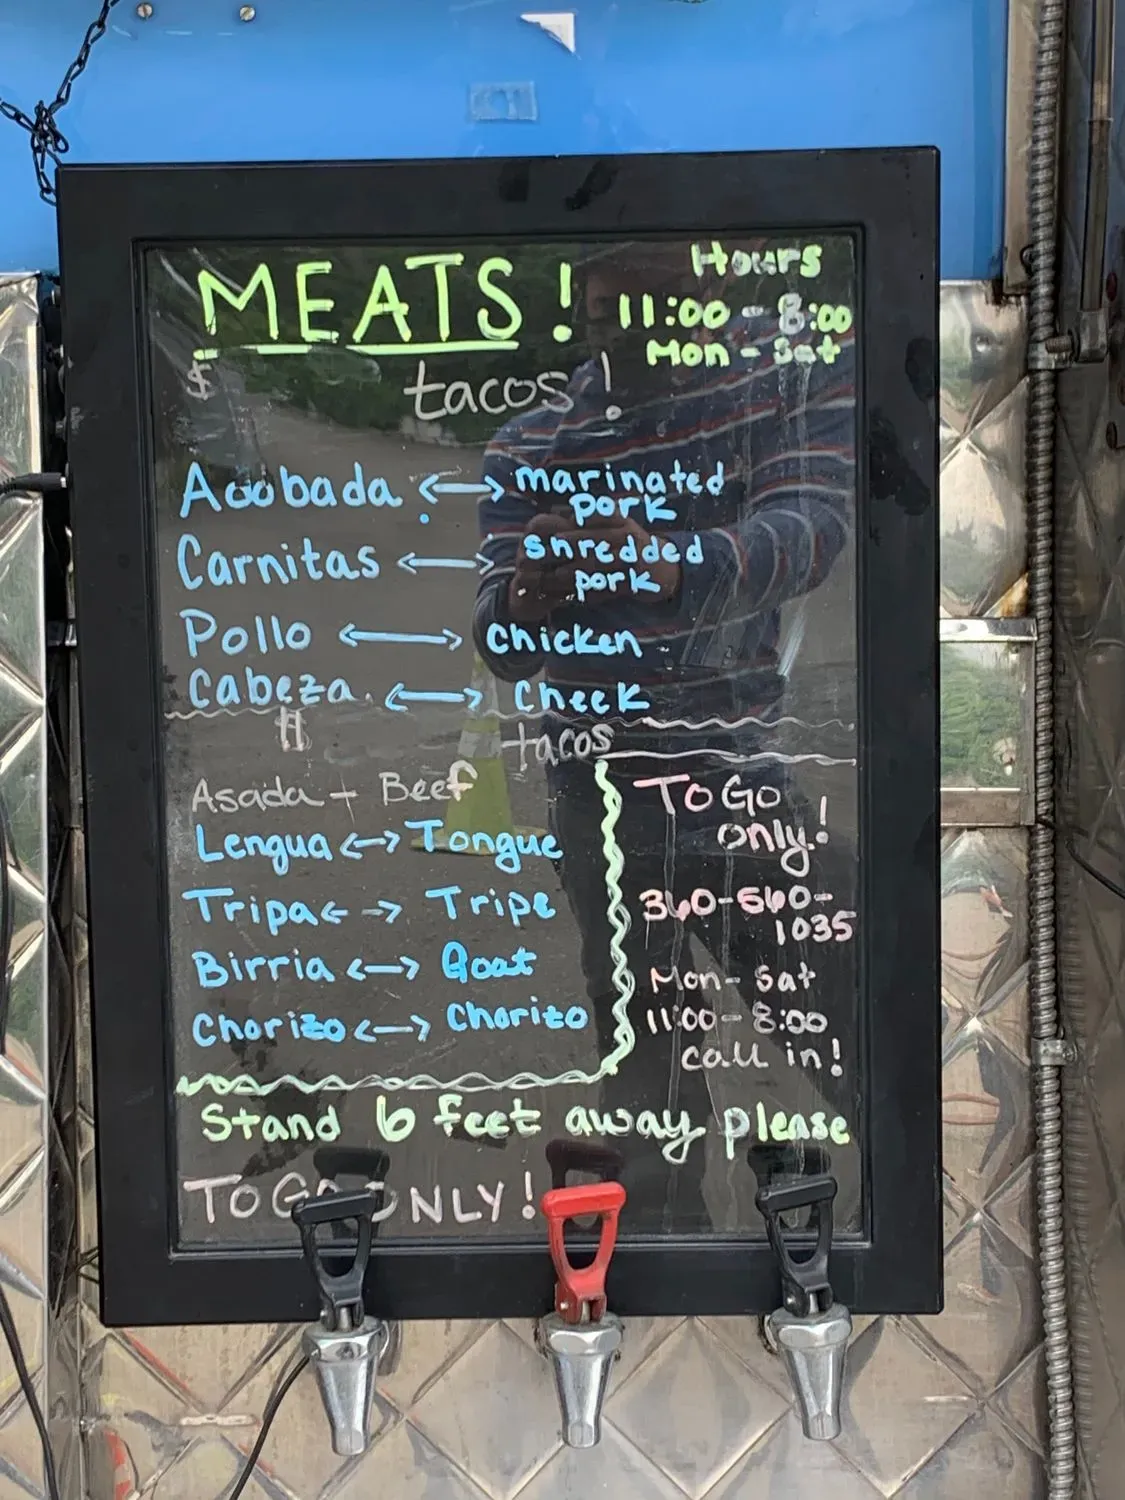 MEATS!
Hours
11:00 - 8:00
Mon - Sat
$ tacos!
Adobada <--> marinated pork
Carnitas <--> shredded pork
Pollo <--> Chicken
Cabeza <--> Cheek
tacos
Asada + Beef
Lengua <--> Tongue
Tripa <--> Tripe
Birria <--> Goat
Chorizo <--> Chorizo
To Go
only!
360-560-
1035
Mon- Sat
11:00-8:00
call in!
Stand 6 feet away please
TO GO ONLY!